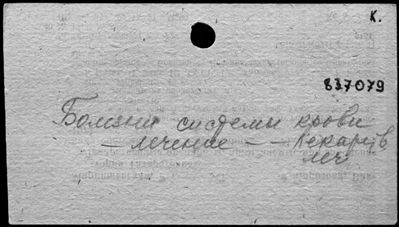 К.
837079
Болезни системы крови
— лечение — — Лекарств
леч